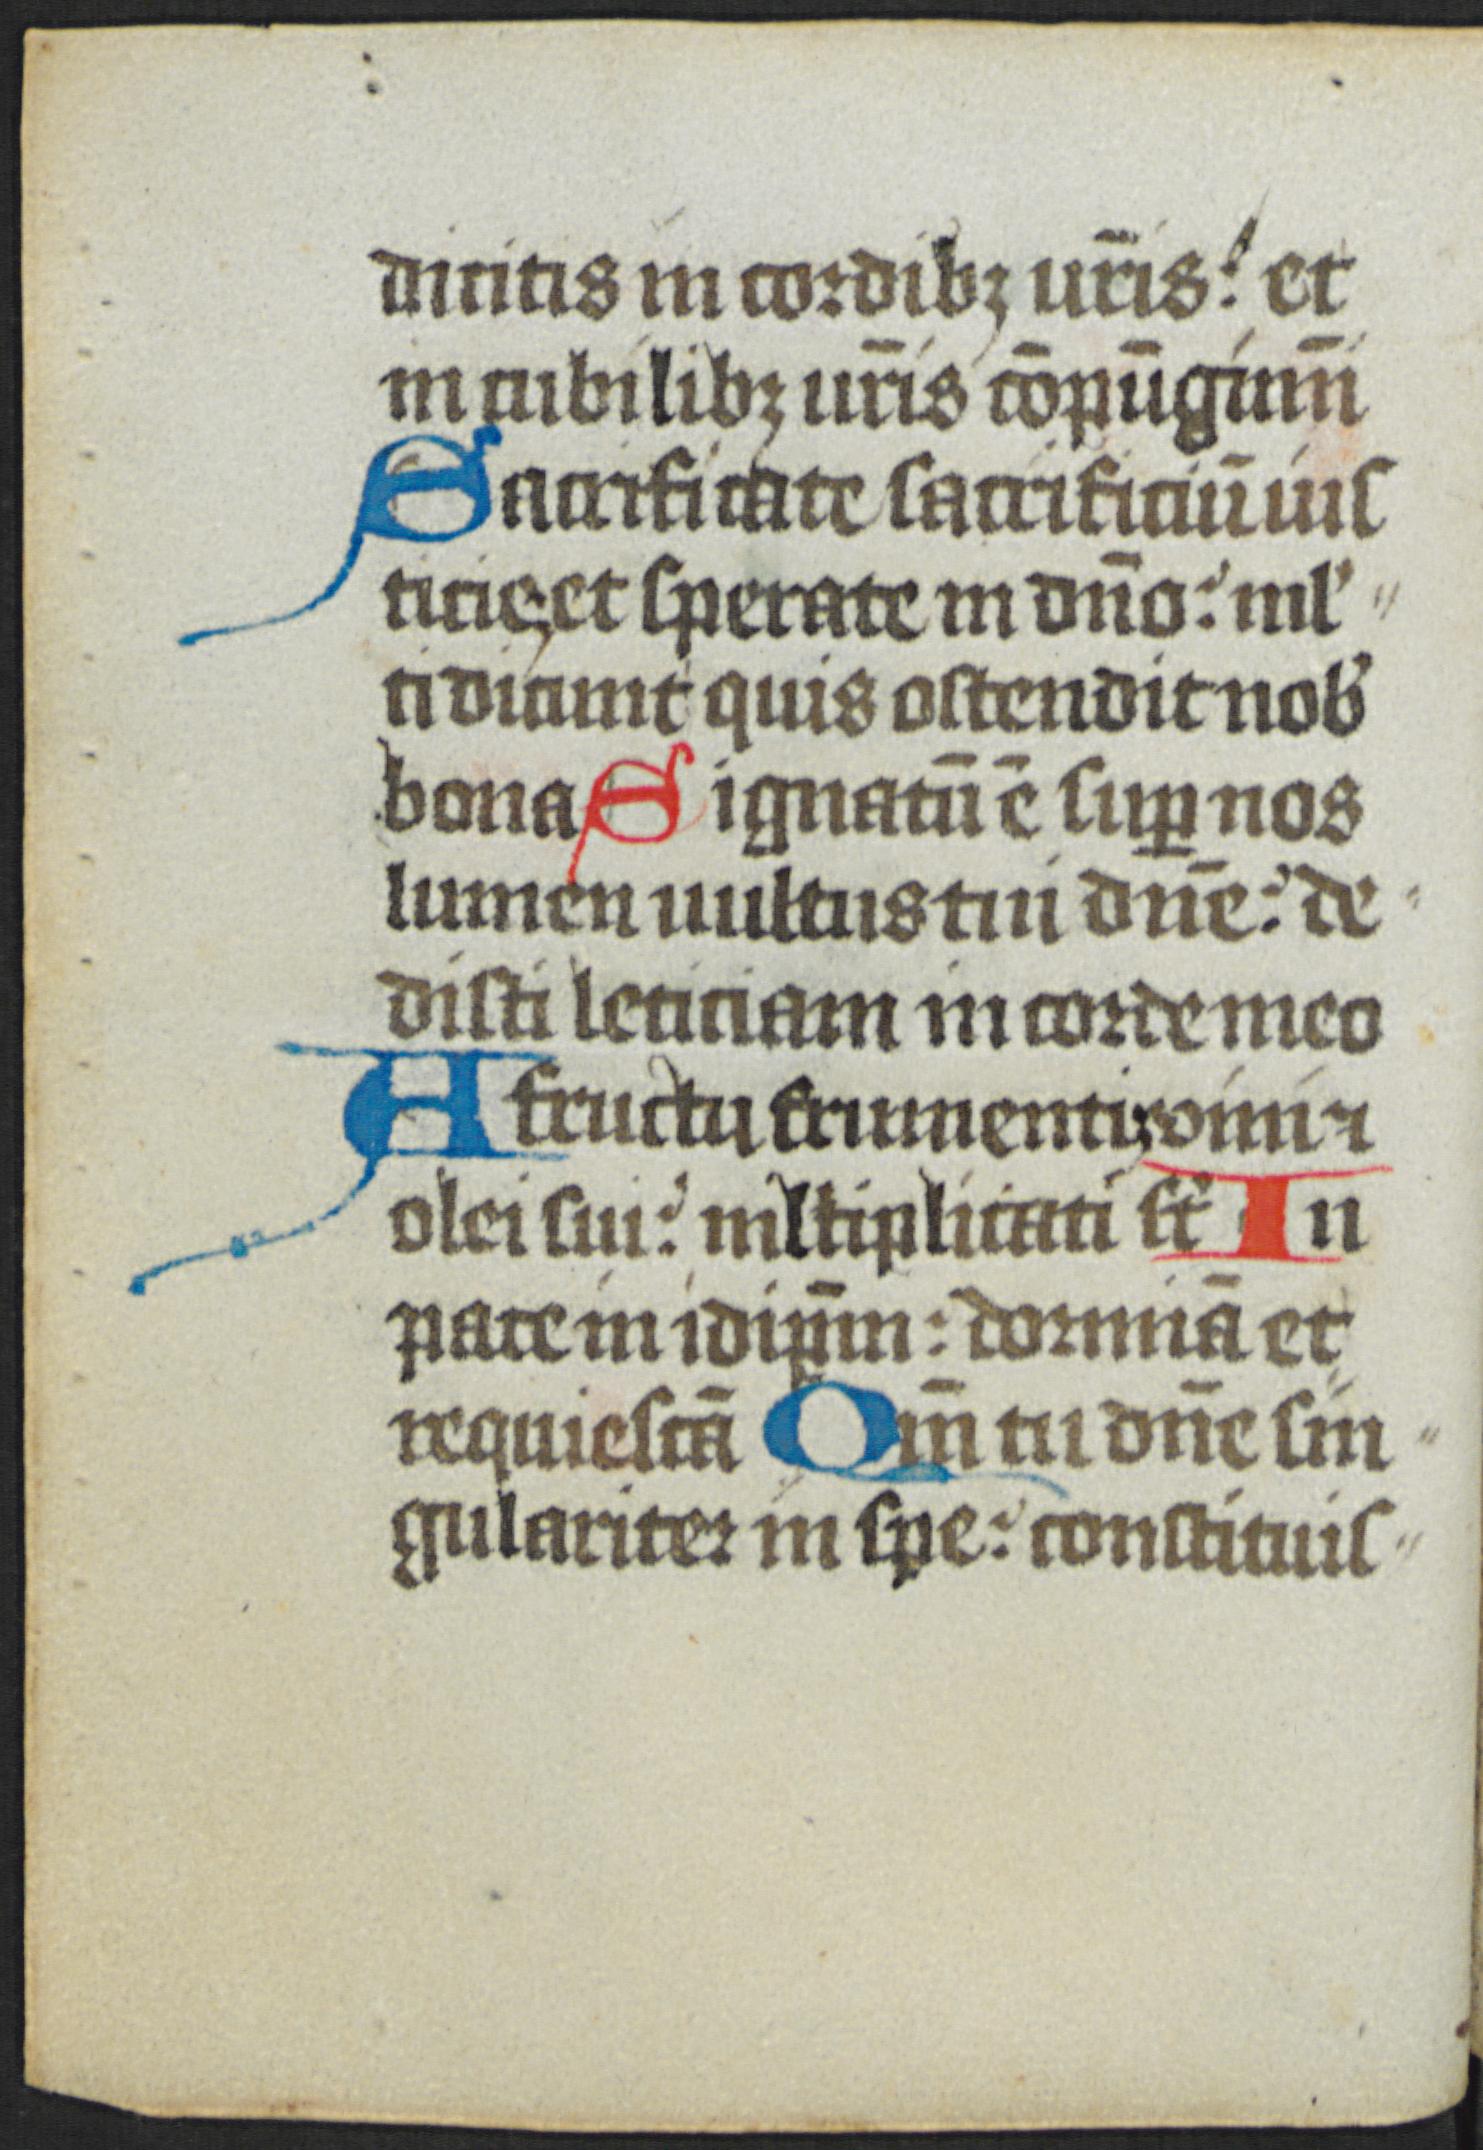 dicitis in cordibꝫ ur̄is: et
in cubilibꝫ ur̄is cōpūgimī
Sacrificate sacrificiū ius
ticie et sperate in dn̄o: ml'
ti dicunt quis ostendit nob'
bona Signatū ē suꝑ nos
lumen uultus tui dn̄e: de
disti leticiam in corde meo
A fructu frumenti vini ⁊
olei sui: ml'tiplicati st' In
pace in idip̄m: dormiā et
requiescā Qm̄ tu dn̄e sin
gulariter in spe: constituis